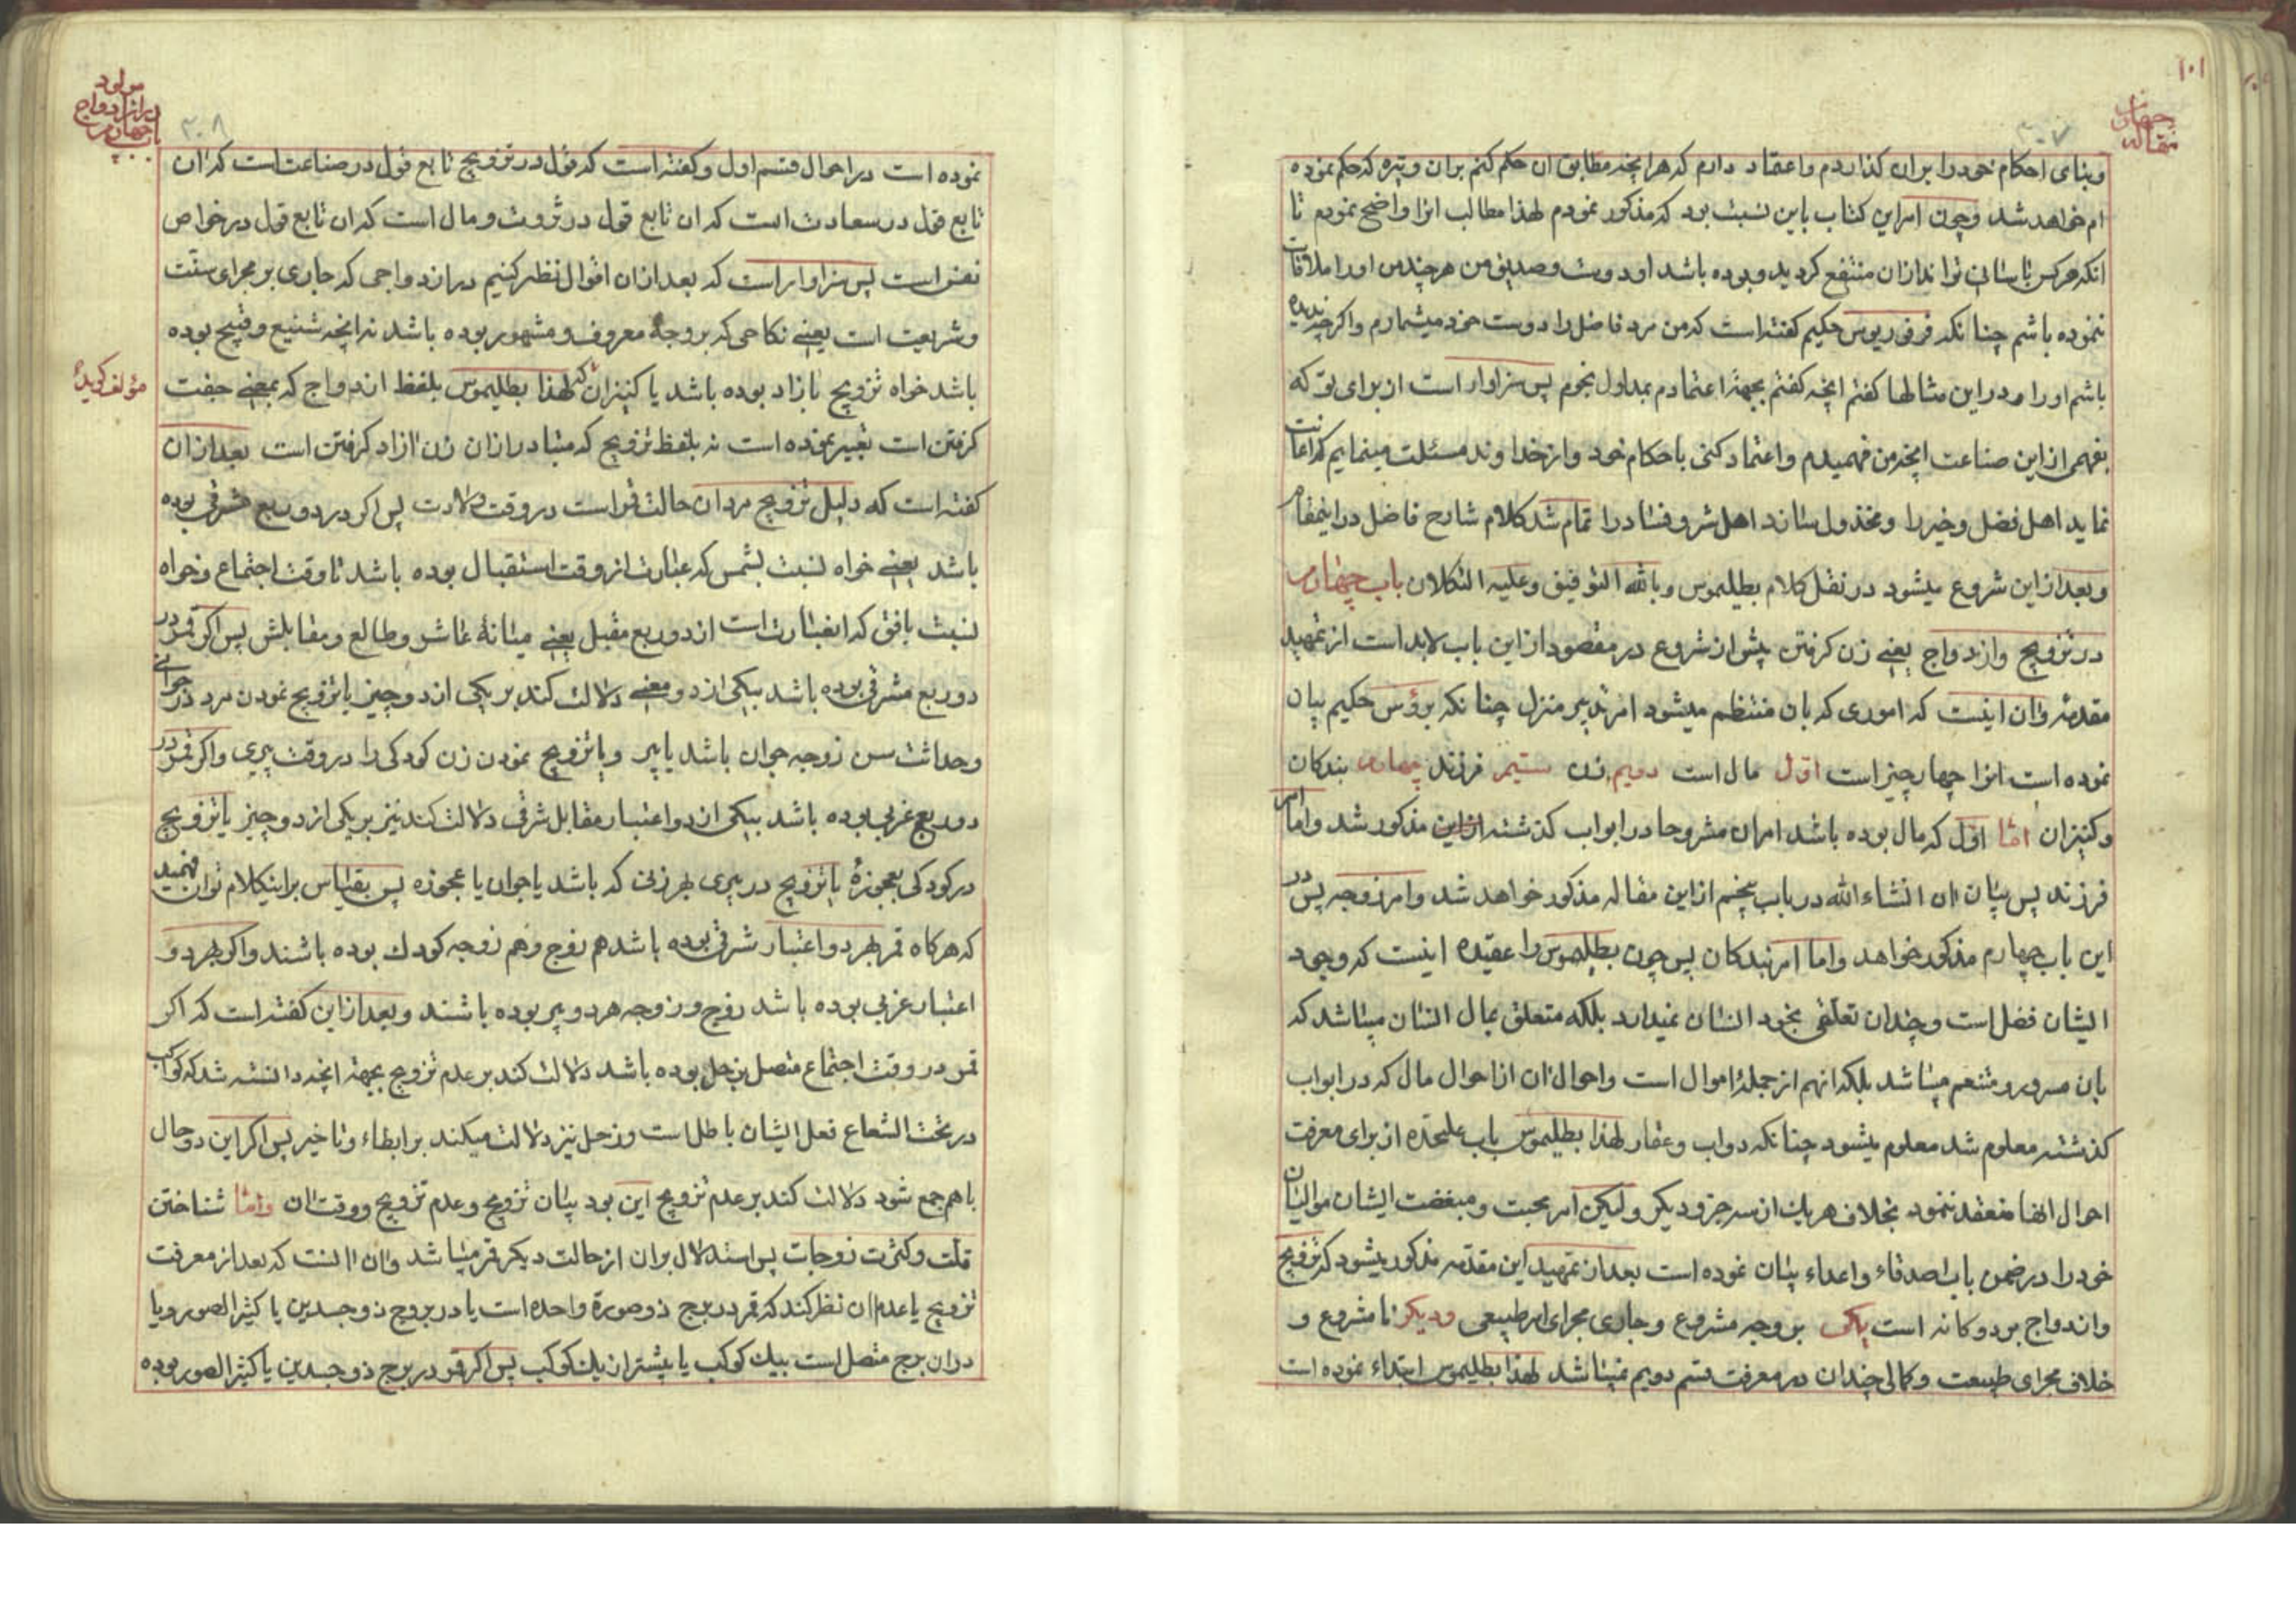 ۱۰۱
مقاله چهارم
۲۰۷
و بنای احکام خود را بران گذاردم و اعتقاد دارم که هر انچه مطابق ان حکم کنم بران وتیره که حکم نموده
ام خواهد شد و چون امر این کتاب باین نسبت بود که مذکور نمودم لهذا مطالب انرا واضح نمودم تا
انکه هر کس باسانی تواند ازان منتفع کردید و بوده باشد او دوست و صدیق من هر چند من او را ملاقات
ننموده باشم چنانکه فرفوریوس حکیم کفته است که من مرد فاضل را دوست خود میشمارم و اکر چه ندیده
باشم او را و در این مثالها کفتم انچه کفتم بجهة اعتمادم بمداول نجوم پس سزاوار است از برای تو که
بفهمی از این صناعت انچه من فهمیدم و اعتماد کنی باحکام خود و از خداوند مسئلت مینمایم که اعانت
نماید اهل فضل و خیر را و مخذول سازد اهل شر و فساد را تمام شد کلام شارح فاضل در اینمقام
و بعد از این شروع میشود در نقل کلام بطلیموس و بالله التوفیق و علیه التکلان باب چهارم
در تزویج و ازدواج یعنی زن کرفتن پیش از شروع در مقصود از این باب لابد است از تمهید
مقدمه و ان اینست که اموری که بان منتظم میشود امر تدبیر منزل چنانکه برؤس حکیم بیان
نموده است انرا چهار چیز است اول مال است دویم زن سیم فرزند چهارم بندکان
و کنیزان اما اول که مال بوده باشد امر ان مشروحا در ابواب کذشته از این مذکور شد و اما امر
فرزند پس بیان ان انشاء الله در باب پنجم از این مقاله مذکور خواهد شد و امر زوجه پس در
این باب چهارم مذکور خواهد و اما امر بندکان پس چون بطلیموس را عقیده اینست که وجود
ایشان فضل است و چندان تعلقی بخود انسان نمیدارد بلکه متعلق بمال انسان میباشد که
بان مسرور و متنعم میباشد بلکه انهم از جملهٔ اموال است و احوال ان از احوال مال که در ابواب
کذشته معلوم شد معلوم میشود چنانکه دواب و عقار لهذا بطلیموس باب علیحده از برای معرفت
احوال انها منعقد ننمود بخلاف هر یک از سه جزو دیکر ولیکن امر محبت و مبغضت ایشان موالیان
خود را در ضمن باب اصدقاء و اعداء بیان نموده است بعد از تمهید این مقدمه مذکور میشود که تزویج
و ازدواج بر دو کانه است یکی بر وجه مشروع و جاری مجرای امر طبیعی و دیکر نا مشروع و
خلاف مجرای طبیعت و کمالی چندان در معرفت قسم دویم نمیباشد لهذا بطلیموس ابتداء نموده است
مولود
در ازدواج
باب چهارم
۲۰۸
نموده است در احوال قسم اول و کفته است که قول در تزویج تابع قول در صناعت است که ان
تابع قول در سعادت است که ان تابع قول در ثروت و مال است که ان تابع قول در خواص
نفس است پس سزاوار است که بعد از ان اقوال نظر کنیم در ازدواجی که جاری بر مجرای سنت
و شریعت است یعنی نکاحی که بر وجه معروف و مشهور بوده باشد نه انچه شنیع و قبیح بوده
باشد خواه تزویج بازاد بوده باشد یا کنیزان که لهذا بطلیموس بلفظ ازدواج که بمعنی جفت
مؤلف کوید
کرفتن است تعبیر نموده است نه بلفظ تزویج که متبادر ازان زن ازاد کرفتن است بعد از ان
کفته است که دلیل تزویج مردان حالت قمر است در وقت ولادت پس اکر در دو ربع شرقی بوده
باشد یعنی خواه نسبت بشمس که عبارت از وقت استقبال بوده باشد تا وقت اجتماع و خواه
نسبت بافق که عبارت است از دو ربع مقبل یعنی میانهٔ عاشر و طالع و مقابلش پس اکر قمر در
دو ربع مشرقی بوده باشد بیکی از دو معنی دلالت کند بر یکی از دو چیز یا تزویج نمودن مرد در جوانی
و حداثت سن زوجه جوان باشد یا پیر و یا تزویج نمودن زن کودکی را در وقت پیری و اکر قمر در
دو ربع غربی بوده باشد بیکی از دو اعتبار مقابل شرقی دلالت کند نیز بر یکی از دو چیز یا تزویج
در کودکی بعجوزهٔ یا تزویج در پیری بهر زنی که باشد یا جوان یا عجوزه پس بقیاس بر اینکلام توان فهمید
که هر کاه قمر بهر دو اعتبار شرقی بوده باشد هم زوج و هم زوجه کودک بوده باشند و اکر بهر دو
اعتبار غربی بوده باشد زوج و زوجه هر دو پیر بوده باشند و بعد از این کفته است که اکر
قمر در وقت اجتماع متصل بزحل بوده باشد دلالت کند بر عدم تزویج بجهة انچه دانسته شد که کواکب
در تحت الشعاع فعل ایشان باطل است و زحل نیز دلالت میکند بر ابطاء و تاخیر پس اکر این دو حال
با هم جمع شود دلالت کند بر عدم تزویج این بود بیان تزویج و عدم تزویج و وقت ان و اما شناختن
قلت و کثرت زوجات پس استدلال بران از حالت دیکر قمر میباشد و ان انست که بعد از معرفت
تزویج یا عدم ان نظر کند که قمر در برج ذو صورة واحده است یا در بروج ذو جسدین یا کثیر الصور و یا
در ان برج متصل است بیک کوکب یا بیشتر از یک کوکب پس اکر قمر در برج ذو جسدین یا کثیر الصور بوده